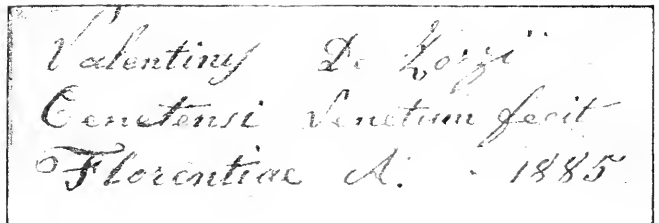 Valentinus De Zorzi
Cenetensi Venetum fecit
Florentiae A. - 1885